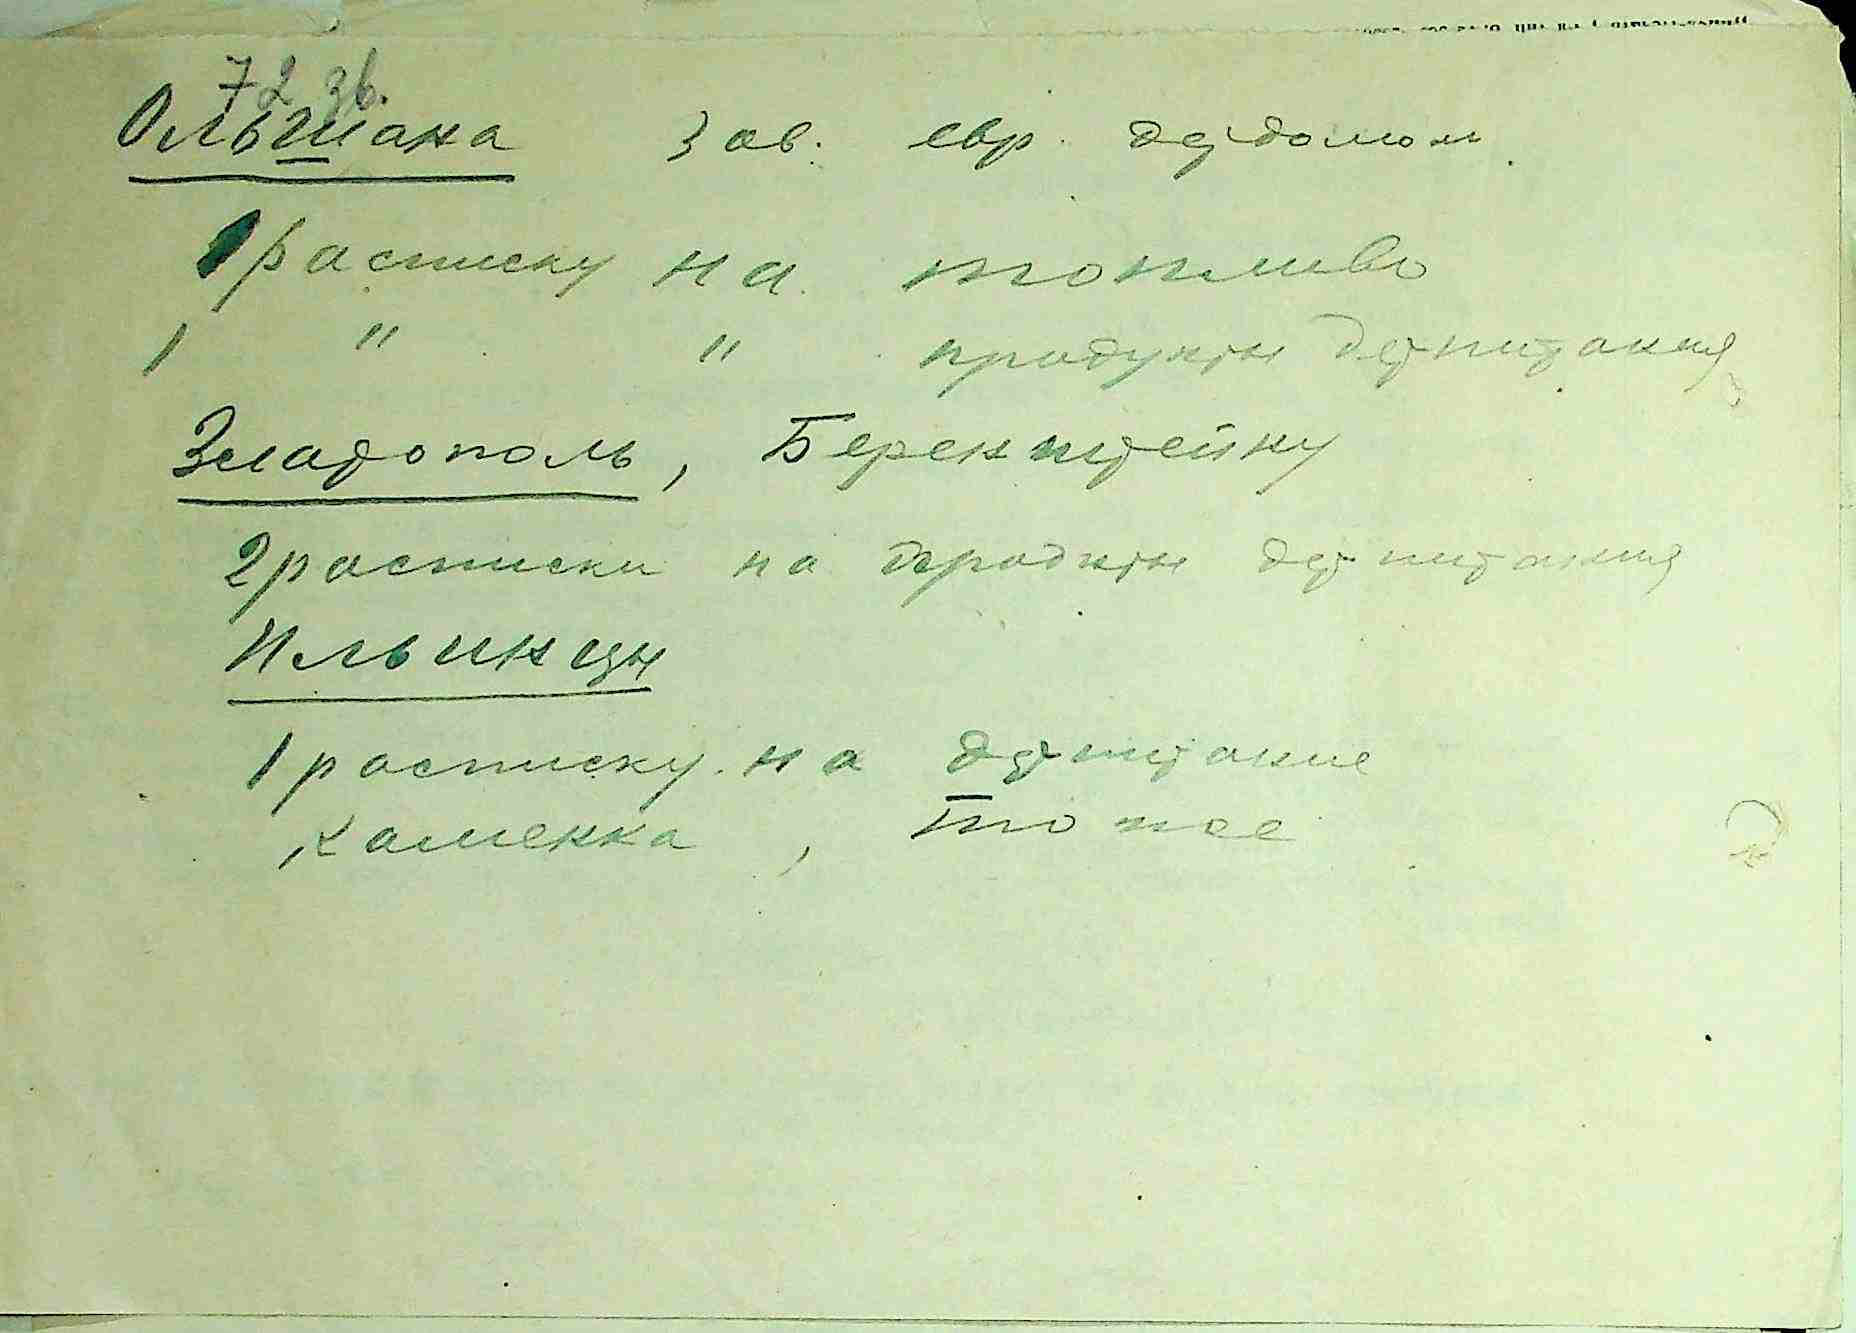 72 зв.
Ольшана зав. евр. детдомом.
1 расписку на топливо
1 " " продукты детпитания
Златополь, Беренштейну
2 расписки на продкты детпитания
Ильинцы
1 расписку на детпитание
Каменка, то же